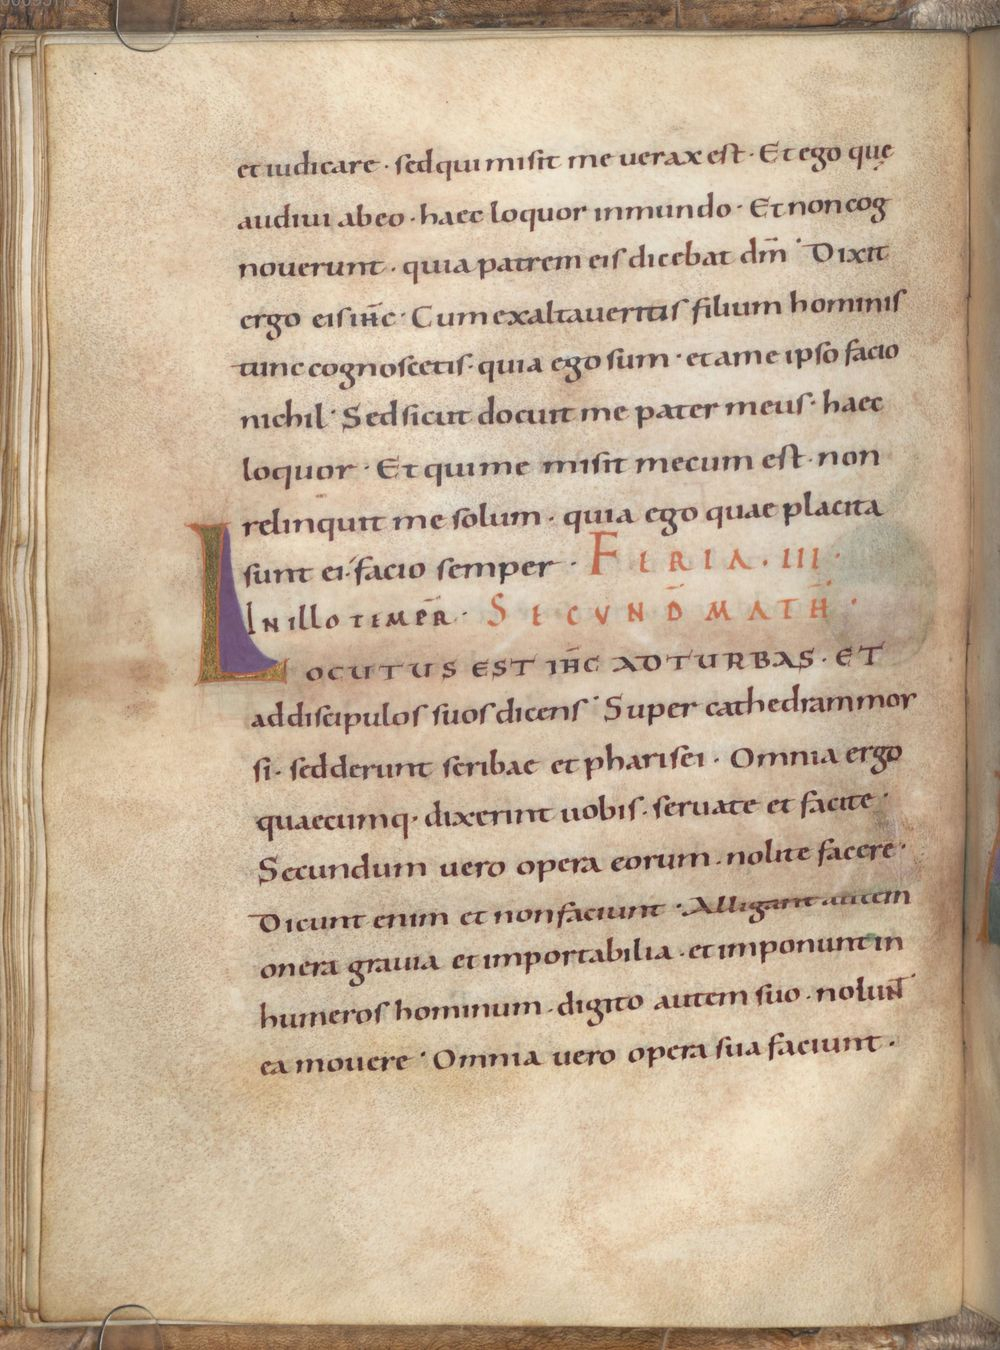 et iudicare · sed qui misit me uerax est · Et ego quę
audiui ab eo · haec loquor in mundo · Et non cog
nouerunt · quia patrem eis dicebat dm̄ · Dixit
ergo eis ih̄c · Cum exaltaueritis filium hominis
tunc cognoscetis · quia ego sum · et a me ipso facio
nichil · Sed sicut docuit me pater meus · haec
loquor · Et qui me misit mecum est · non
relinquit me solum · quia ego quae placita
sunt ei · facio semper · FERIA · III ·
In illo tempr̄ · SECUND̄ MATH̄ ·
LOCUTUS EST IH̄C AD TURBAS · ET
ad discipulos suos dicens · Super cathedram mor
si · sedderunt scribae et pharisei · Omnia ergo
quaecumq · dixerint uobis · seruate et facite ·
Secundum uero opera eorum · nolite facere ·
Dicunt enim et non faciunt · Alligant autem
onera grauia et importabilia · et imponunt in
humeros hominum · digito autem suo · nolun̄t
ea mouere · Omnia uero opera sua faciunt ·